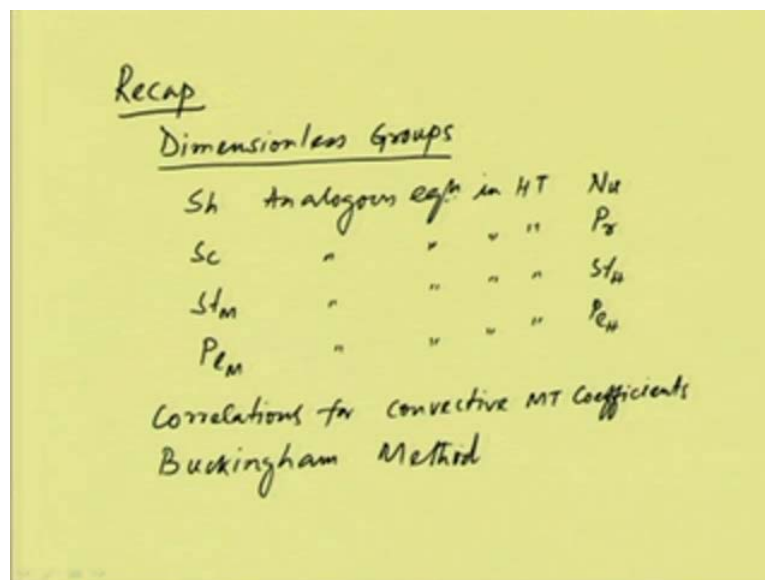 Recap
Dimensionless Groups
Sh Analogous eqn. in HT Nu
Sc " " " " Pr
StM " " " " StH
PeM " " " " PeH
Correlations for convective MT Coefficients
Buckingham Method